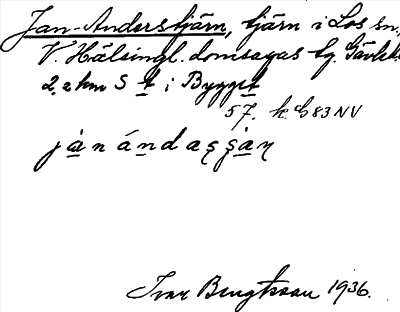 Jan-Anderstjärn, tjärn i Los sn.,
V. Hälsingl. domsagas tg. Gävleb.
2,2 km S t i Bygget
57. k. G 83 NV
jànándaʂʂàn
Ivar Bengtsson 1936.